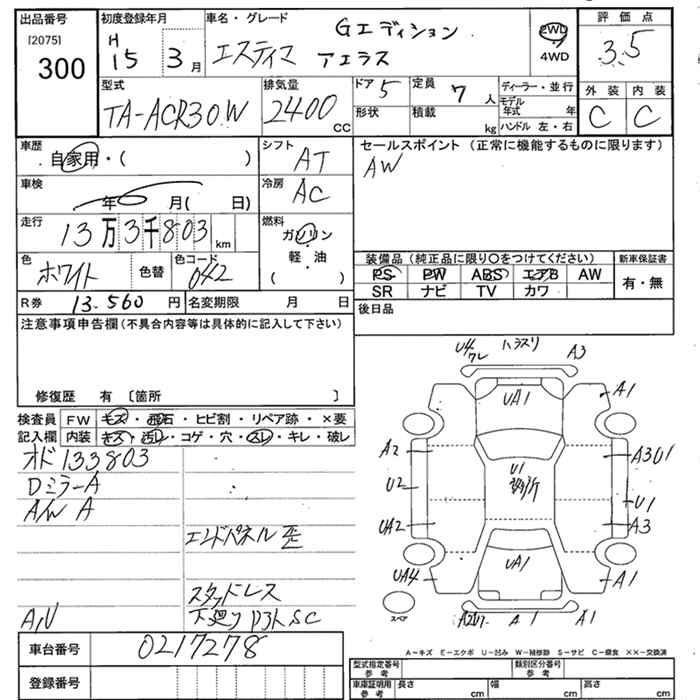 出品番号
[2075]
300
初度登録年月
H
15 3月
車名・グレード
エスティマ
Gエディション
アエラス
2WD
4WD
評価点
3.5
型式
TA-ACR30W
排気量
2400 CC
ドア 5
定員 7 人
形状
積載 kg
ディーラー・並行
モデル年式 年
ハンドル 左・右
外装 内装
C C
車歴
自家用・( )
シフト
AT
車検
年 月( 日)
冷房
AC
走行
13万3千803 km
燃料
ガソリン・
軽・油
( )
色
ホワイト
色替
色コード
042
R券 13.560 円
名変期限 月 日
セールスポイント (正常に機能するものに限ります)
AW
装備品 (純正品に限り○をつけてください)
新車保証書
PS PW ABS エアB AW
SR ナビ TV カワ
有・無
後日品
注意事項申告欄(不具合内容等は具体的に記入して下さい)
修復歴 有 〔箇所 〕
検査員 FW キズ・飛石・ヒビ割・リペア跡・×要
記入欄 内装 キズ・汚レ・コゲ・穴・スレ・キレ・破レ
オド133803
DミラーA
A/W A
エンドパネル歪
スタッドレス
下廻りサビSC
車台番号 0217278
登録番号
U4
ワレ
ハラスリ
A3
UA1
A1
A2
A3U1
U2
U1
U1
UA2
A3
UA1
UA4
A1
A1
A1
スペア
A−キズ E−エクボ U−凹み W−補修跡 S−サビ C−腐食 ××−交換済
型式指定番号
参考
類別区分番号
参考
車庫証明用
参考
長さ cm
幅 cm
高さ cm